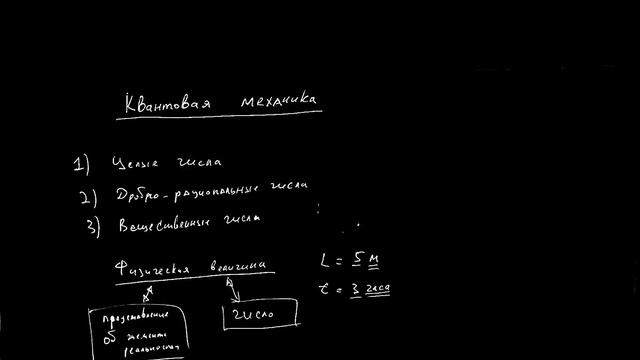 Квантовая механика
1) Целые числа
2) Дробно-рациональные числа
3) Вещественные числа
Физическая величина
L = 5 м
τ = 3 часа
представление
об элементе
реальности
число